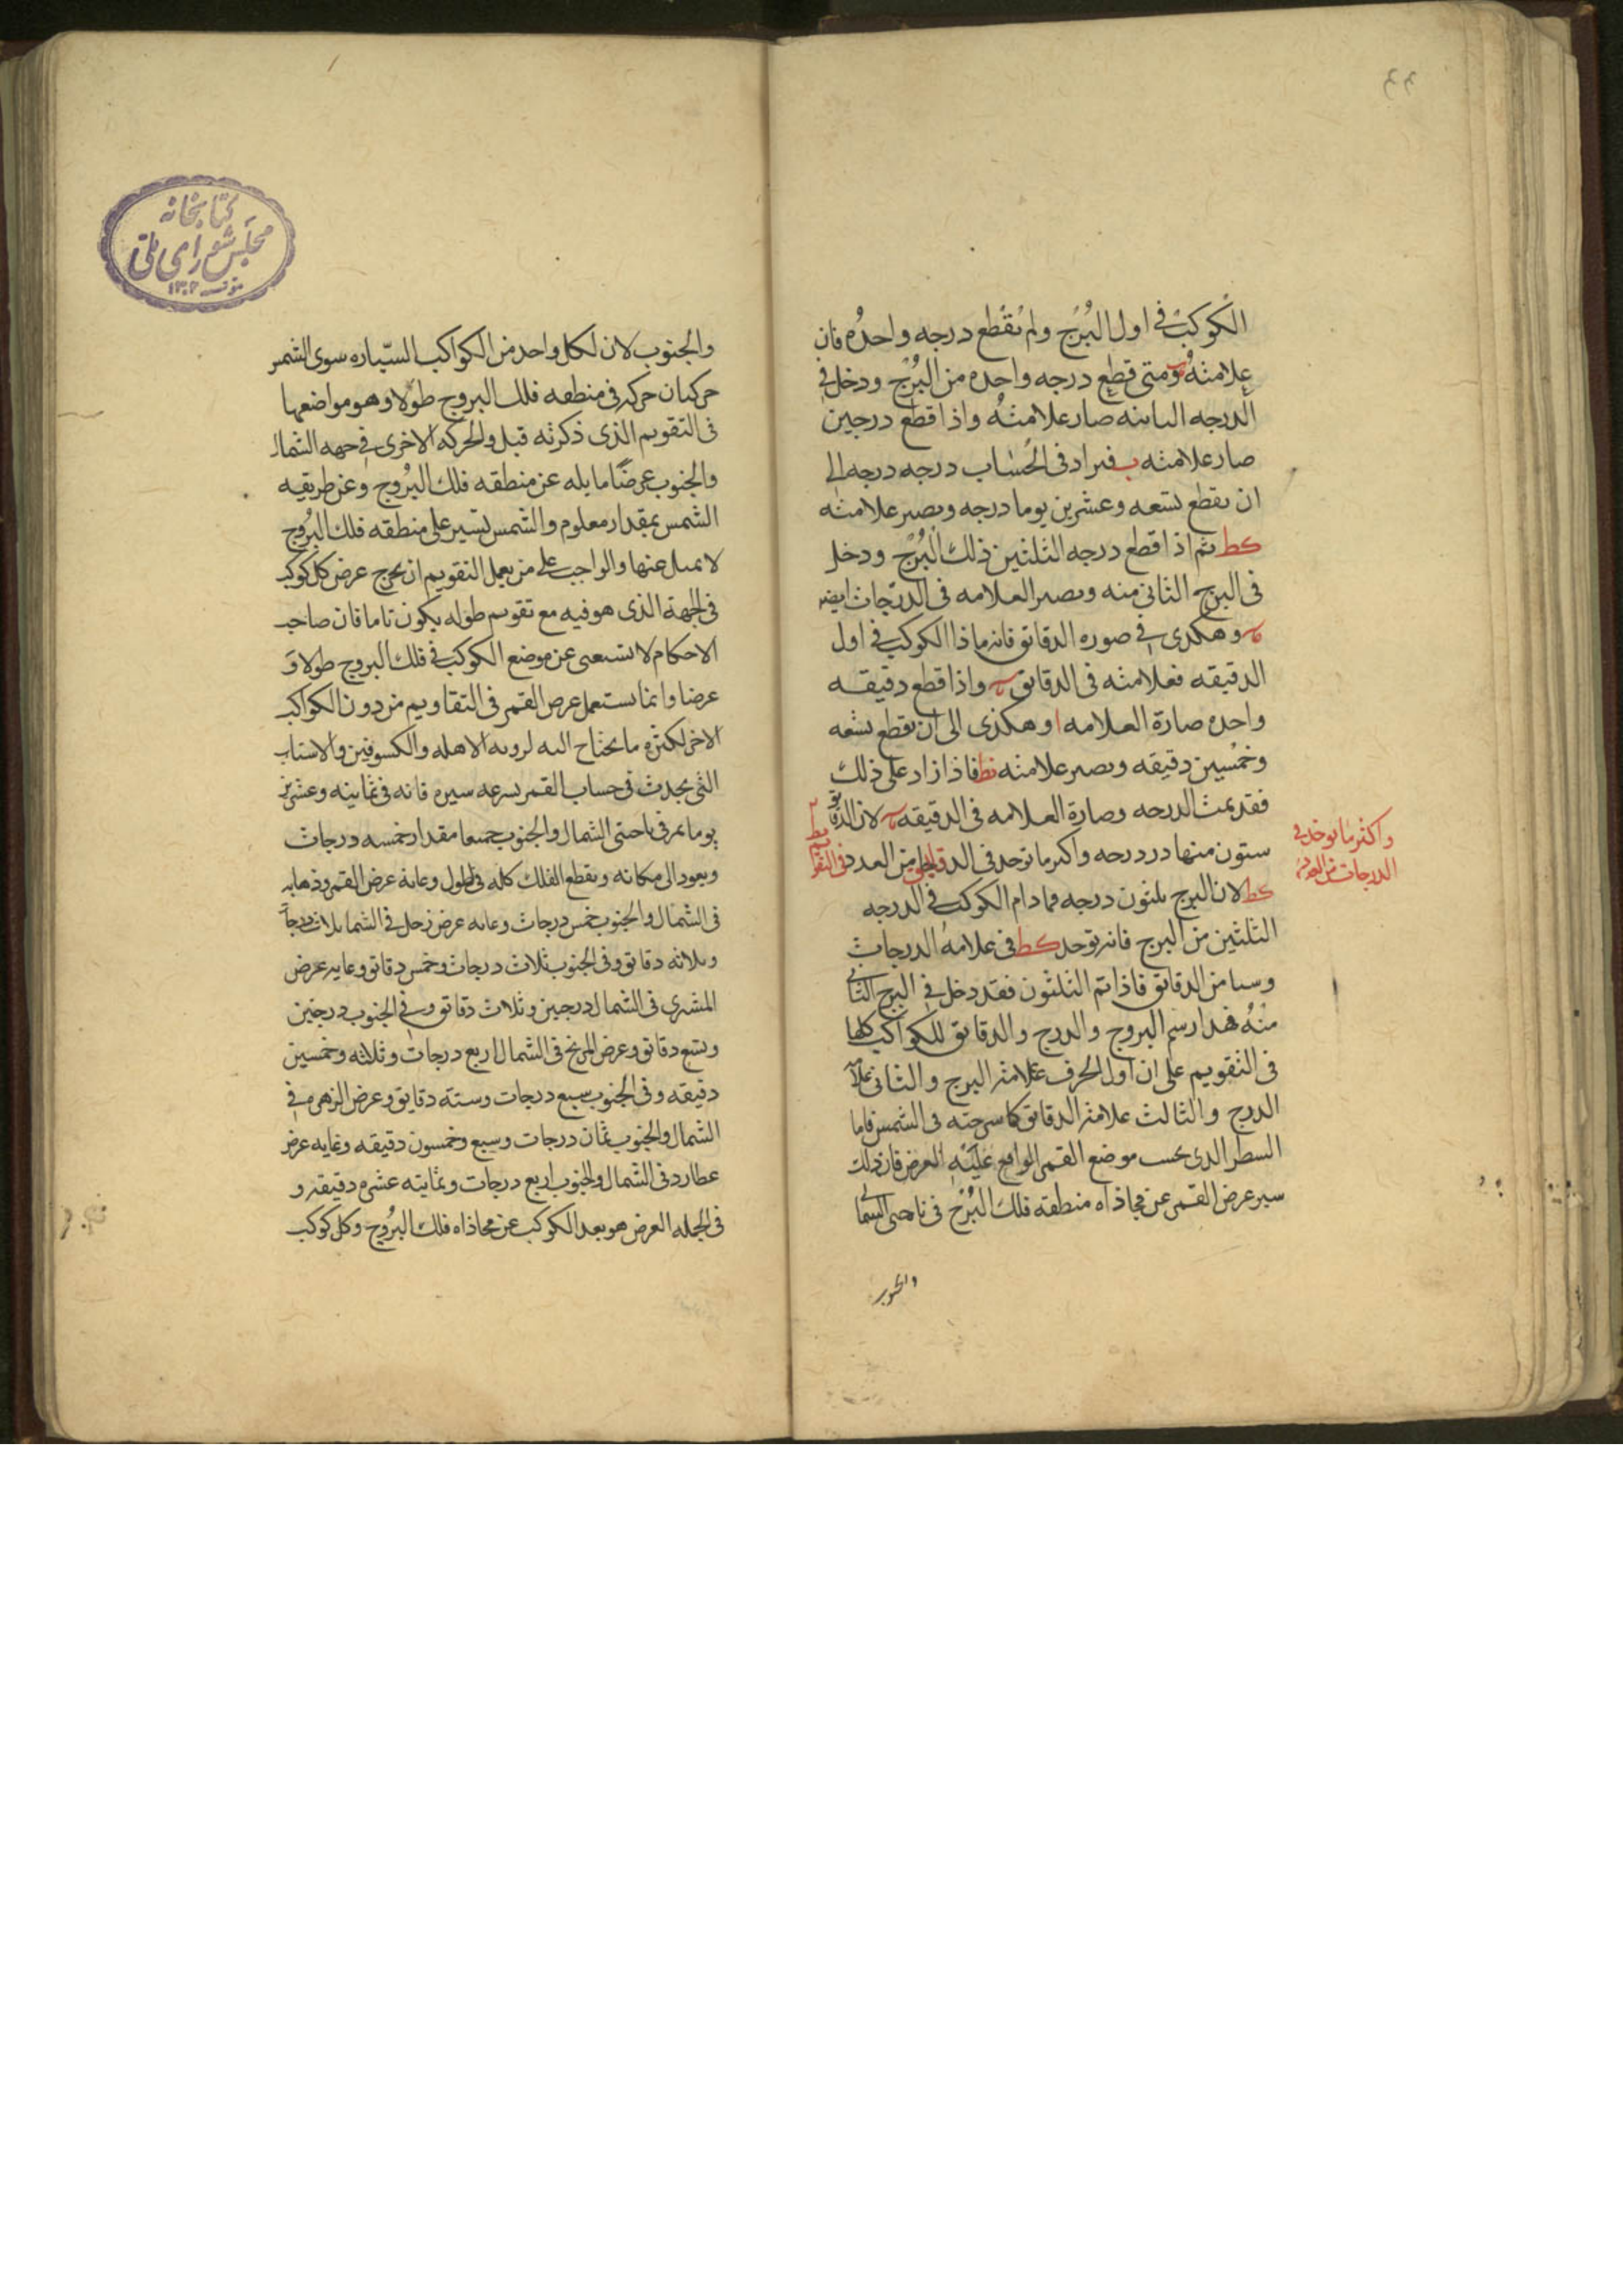 الكوكب في اول البرج ولم يقطع درجه واحده فان
علامته ومتى قطع درجه واحده من البرج ودخل في
الدرجه الثانيه صار علامته واذا قطع درجين
صار علامته ب فيزاد في الحساب درجه درجه الى
ان يقطع تسعه وعشرين يوما درجه ويصير علامته
كط ثم اذا قطع درجه الثلثين ذلك البرج ودخل
في البرج الثاني منه ويصير العلامه في الدرجات ايضا
وهكذى في صوره الدقائق فانه ماذا الكوكب في اول
الدقيقه فعلامته في الدقائق واذا قطع دقيقه
واحده صارة العلامه ا وهكذى الى ان يقطع تسعه
وخمسين دقيقه ويصير علامته نط فاذا زاد على ذلك
فقد تمت الدرجه وصارة العلامه في الدقيقه لان الدقائق
ستون منها در درجه واكثر ما توجد في الدقايق من العدد في التقا
واكثر ما توجد في
الدرجات من العدد
كط لان البرج ثلثون درجه فما دام الكوكب في الدرجه
الثلثين من البرج فانه توجد كط في علامه الدرجات
وسا من الدقائق فاذا تم الثلثون فقد دخل في البرج الثاني
منه فهذا رسم البروج والدرج والدقائق للكواكب كلها
في التقويم على ان اول الحرف علامته البرج والثاني علامة
الدرج والثالث علامته الدقائق كما سرحته في الشمس فاما
السطر الدى تحت موضع القمر الواقع عليه العرض فان ذلك
سير عرض القمر عن محاذاه منطقه فلك البرج في ناحيتى الشمال
والجنوب
كتابخانه
مجلس شوراى ملى
١٣٠٢
والجنوب لان لكل واحد من الكواكب السياره سوى الشمس
حركتان حركه في منطقه فلك البروج طولا وهو مواضعها
في التقويم الذى ذكرته قبل والحركه الاخرى في جهه الشمال
والجنوب عرضا مايله عن منطقه فلك البروج وعن طريقه
الشمس بمقدار معلوم والشمس تسير على منطقه فلك البروج
لا تميل عنها والواجب على من يعمل التقويم ان يخرج عرض كل كوكب
في الجهة الذى هو فيه مع تقويم طوله يكون تاما فان صاحب
الاحكام لا تستغنى عن موضع الكوكب في فلك البروج طولا و
عرضا وانما يستعمل عرض القمر في التقاويم من دون الكواكب
الاخر لكثره ما يحتاج اليه لرويه الاهله والكسوفين والاسباب
التى يحدث في حساب القمر بسرعه سيره فانه في ثمانيه وعشرين
يوما يمر في ناحتى الشمال والجنوب جميعا مقدار خمسه درجات
ويعود الى مكانه ويقطع الفلك كله في الطول وغايه عرض القمر وذهابه
في الشمال والجنوب خمس درجات وغايه عرض زحل في الشمال ثلاث درجات
وثلاثه دقائق وفي الجنوب ثلاث درجات وخمس دقائق وغايه عرض
المشترى في الشمال درجين وثلاث دقائق وفي الجنوب درجتين
وتسع دقائق وعرض المريخ في الشمال اربع درجات وثلاثه وخمسين
دقيقه وفي الجنوب سبع درجات وسته دقايق وعرض الزهره في
الشمال والجنوب ثمان درجات وسبع وخمسون دقيقه وغايه عرض
عطارد في الشمال والجنوب اربع درجات وثمانيه عشره دقيقه و
في الجمله العرض هو بعد الكوكب عن محاذاه فلك البروج وكل كوكب